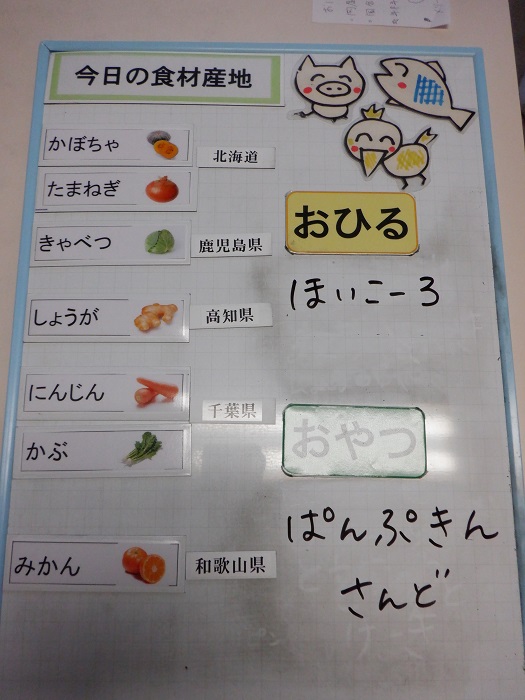 今日の食材産地
かぼちゃ
北海道
たまねぎ
きゃべつ
鹿児島県
しょうが
高知県
にんじん
千葉県
かぶ
みかん
和歌山県
おひる
ほいこーろ
おやつ
ぱんぷきん
さんど